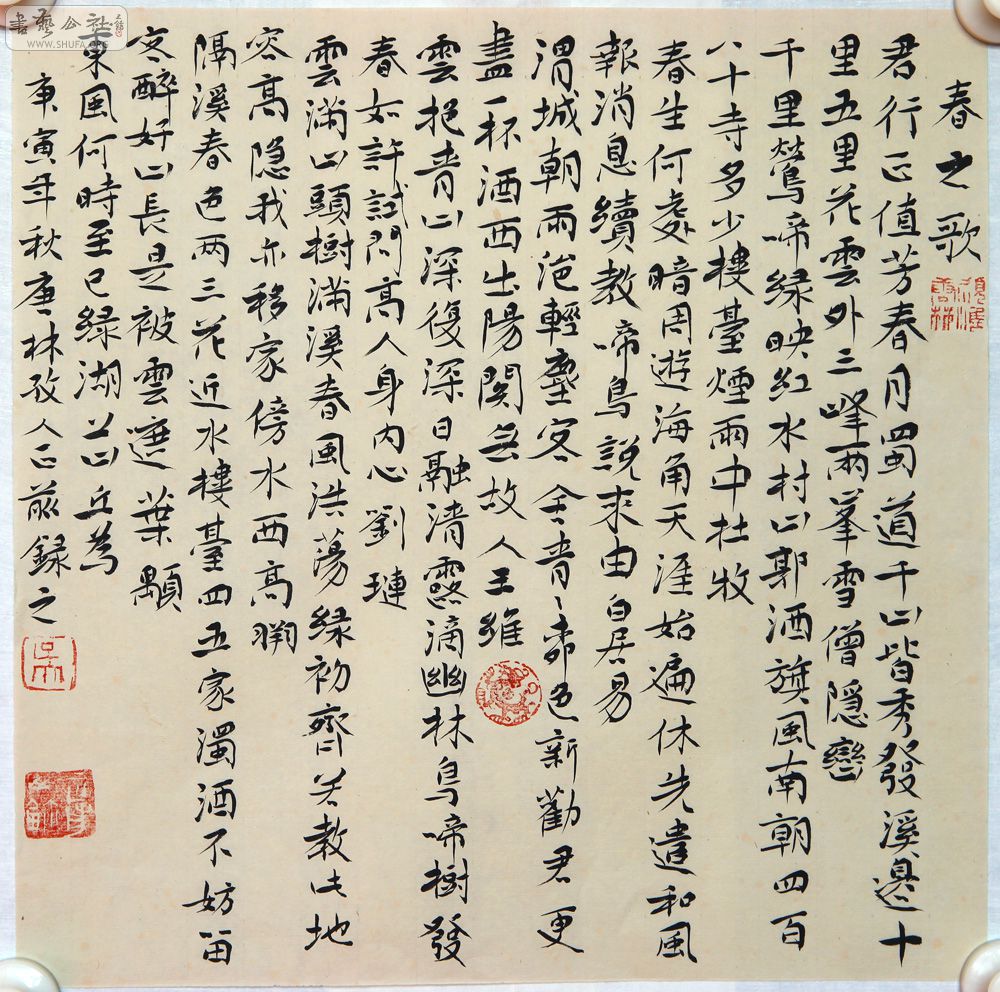 春之歌
君行正值芳春月蜀道千山皆秀發溪邊十
里五里花雲外三峰兩峯雪僧隱巒
千里鶯啼緑映紅水村山郭酒旗風南朝四百
八十寺多少樓臺煙雨中杜牧
春生何處暗周遊海角天涯始遍休先遣和風
報消息續教啼鳥說來由白居易
渭城朝雨浥輕塵客舍青〻柳色新勸君更
盡一杯酒西出陽関無故人王維
雲抱青山深復深日融清露滴幽林鳥啼樹發
春如許試問高人身内心劉璉
雲滿山頭樹滿溪春風浩蕩緑初齊若教此地
容高隐我亦移家傍水西高翔
隔溪春色两三花近水樓臺四五家濁酒不妨留
客醉好山長是被雲遮葉顒
東風何時至已緑湖上山丘為
庚寅年秋唐林孜人正並録之
書藝公社
WWW.SHUFA.ORG